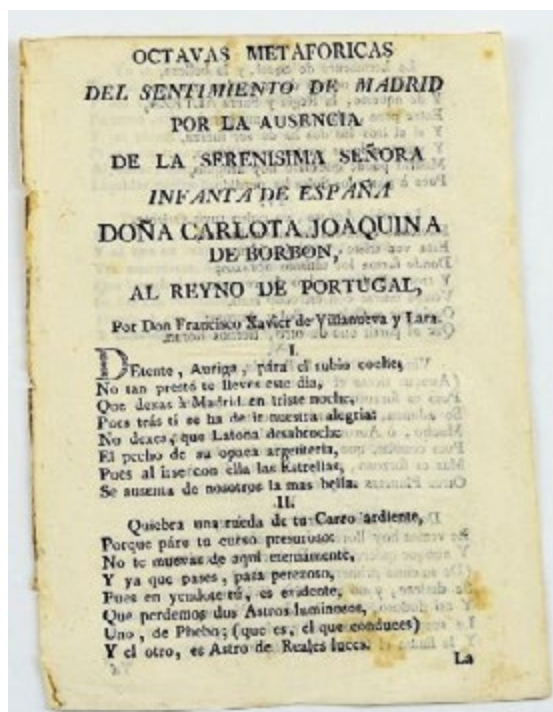 OCTAVAS METAFORICAS
DEL SENTIMIENTO DE MADRID
POR LA AUSENCIA
DE LA SERENISIMA SEÑORA
INFANTA DE ESPAÑA
DOÑA CARLOTA JOAQUINA
DE BORBON,
AL REYNO DE PORTUGAL,
Por Don Francisco Xavier de Villanueva y Lara.
I.
DEtente, Auriga, pára el rubio coche,
No tan presto te lleves este dia,
Que dexas à Madrid en triste noche,
Pues trás tí se ha de ir nuestra alegria:
No dexes, que Latona desabroche
El pecho de su opaca argenteria,
Pues al irse con ella las Estrellas,
Se ausenta de nosotros la mas bella.
II.
Quiebra una rueda de tu Carro ardiente,
Porque páre tu curso presuroso:
No te muevas de aqui eternamente,
Y ya que pases, pasa perezoso,
Pues en yendote tú, es evidente,
Que perdemos dos Astros luminosos,
Uno, de Phebo; (que es, el que conduces)
Y el otro, es Astro de Reales luces.
La